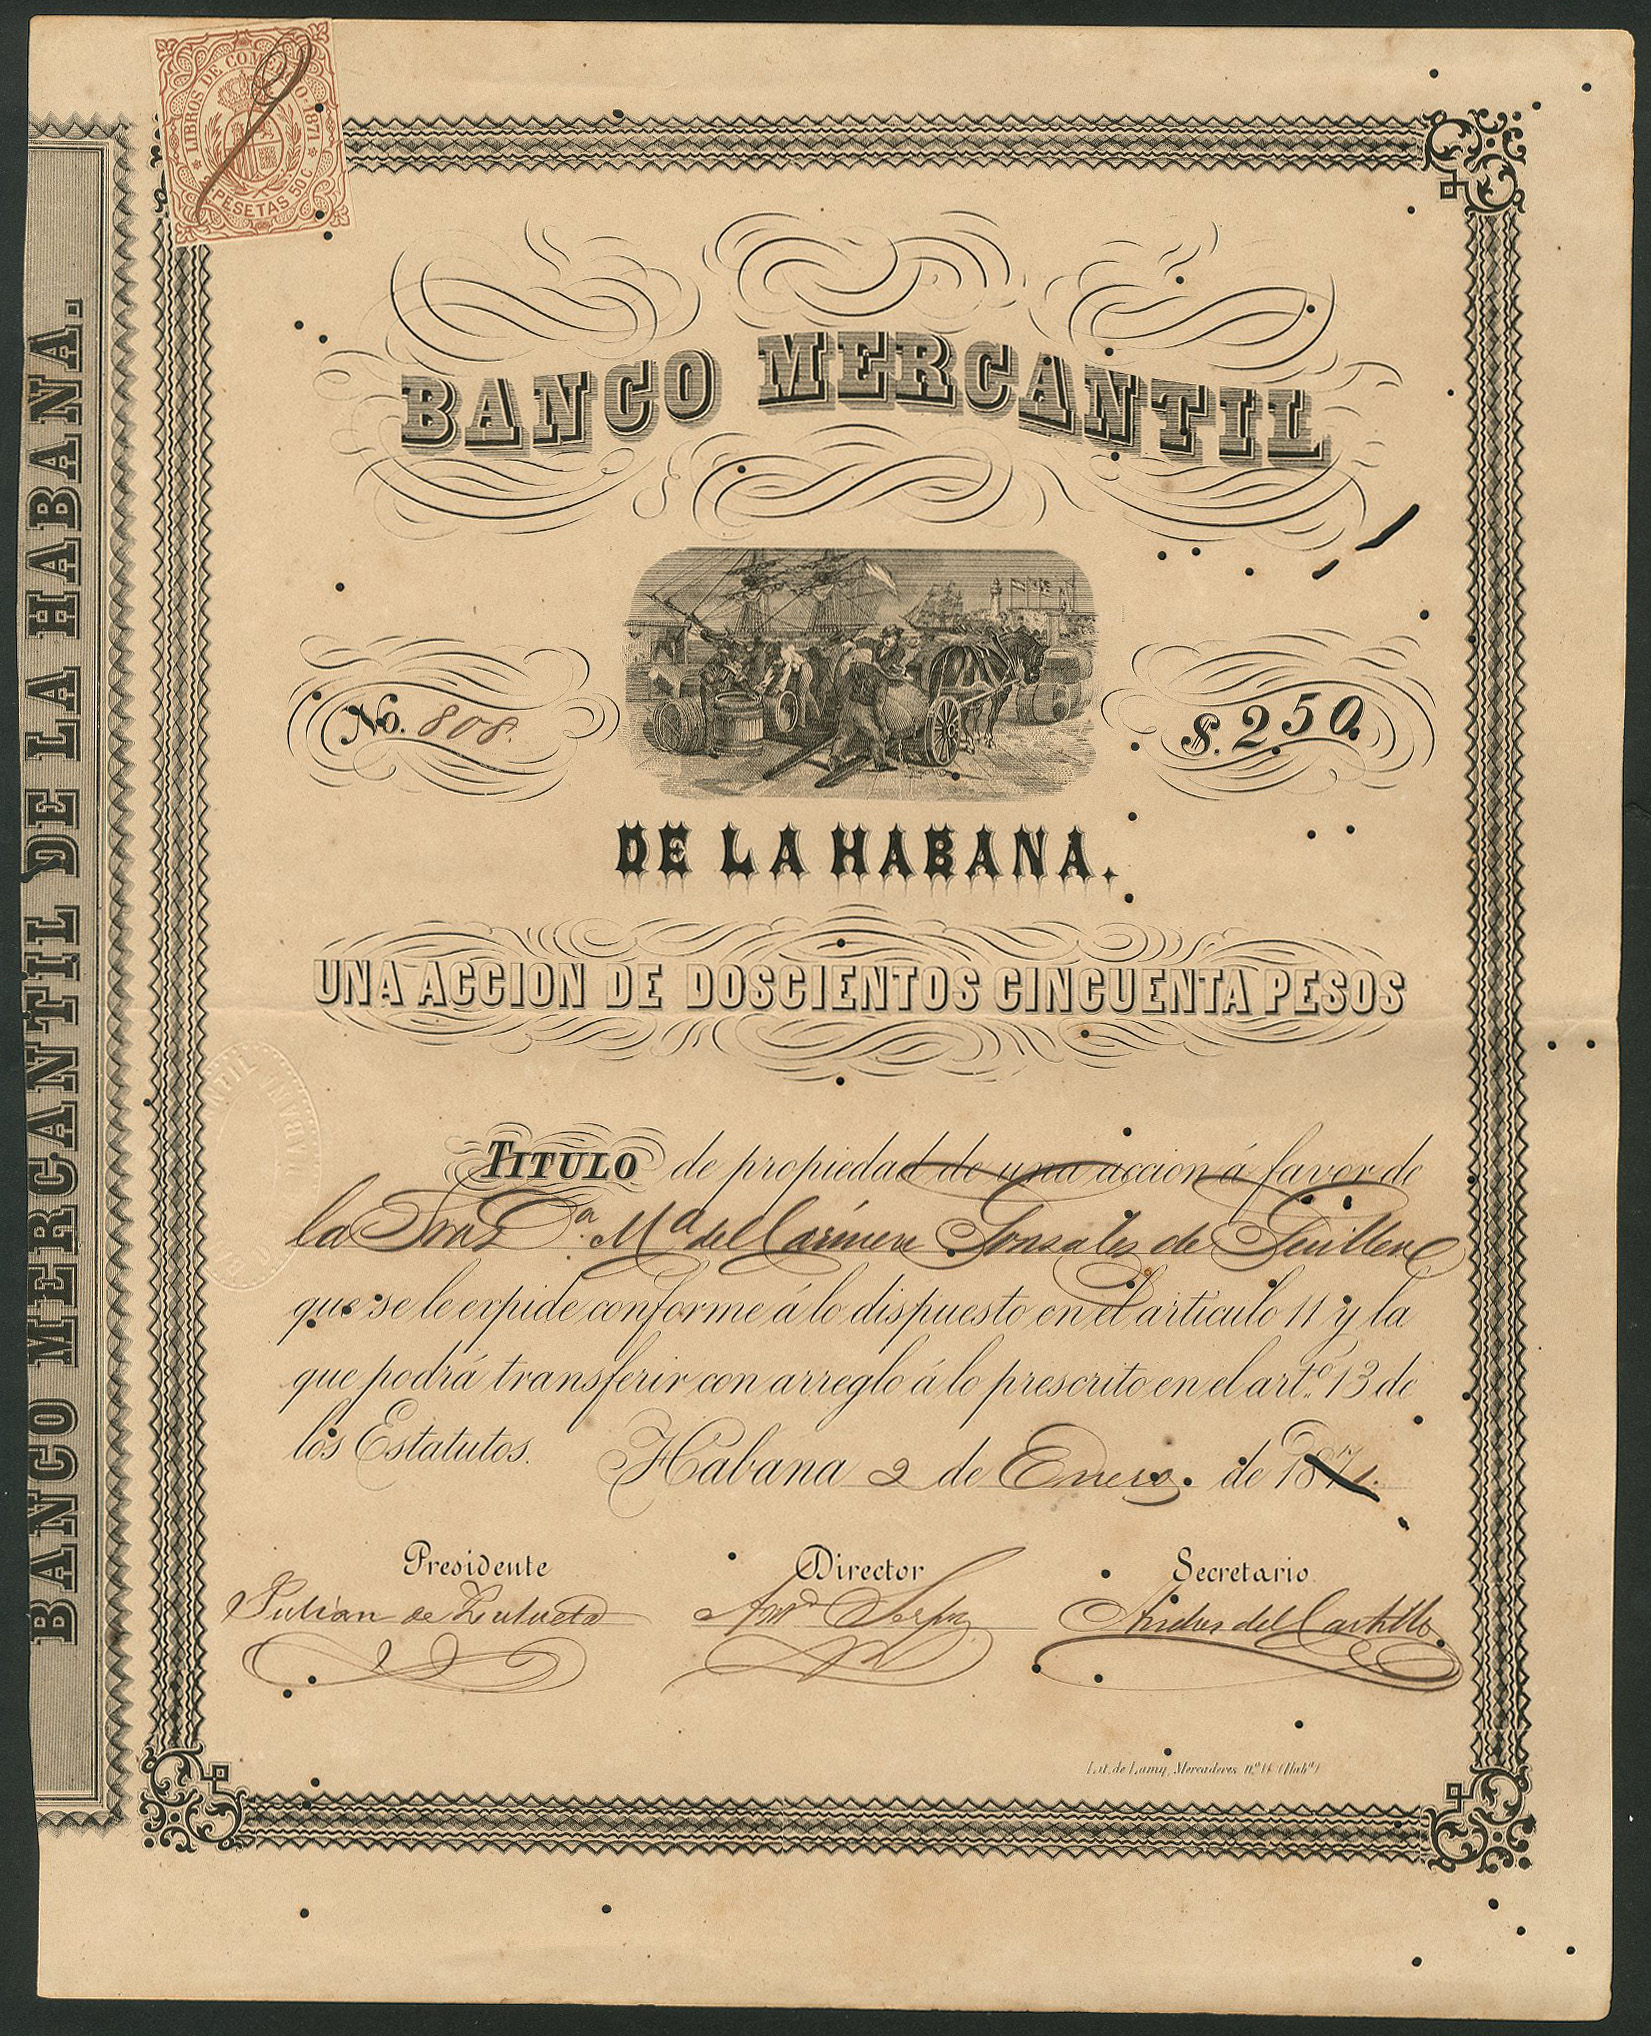 LIBROS DE COMERCIO-1871
PESETAS 50 C
BANCO MERCANTIL DE LA HABANA.
BANCO MERCANTIL
No. 808.
$. 250.
DE LA HABANA.
UNA ACCION DE DOSCIENTOS CINCUENTA PESOS
TITULO de propiedad de una accion á favor de
la Sra Dª. Mª del Cármen Gonsales de Guillen
que se le expide conforme á lo dispuesto en el artículo 11 y la
que podrá transferir con arreglo á lo prescrito en el artº. 13 de
los Estatutos. Habana 2 de Enero. de 1871.
Presidente
Director
Secretario
Julian de Zulueta
Andres del Castillo
Lit. de Lamy, Mercaderes nº 14 (Habª)